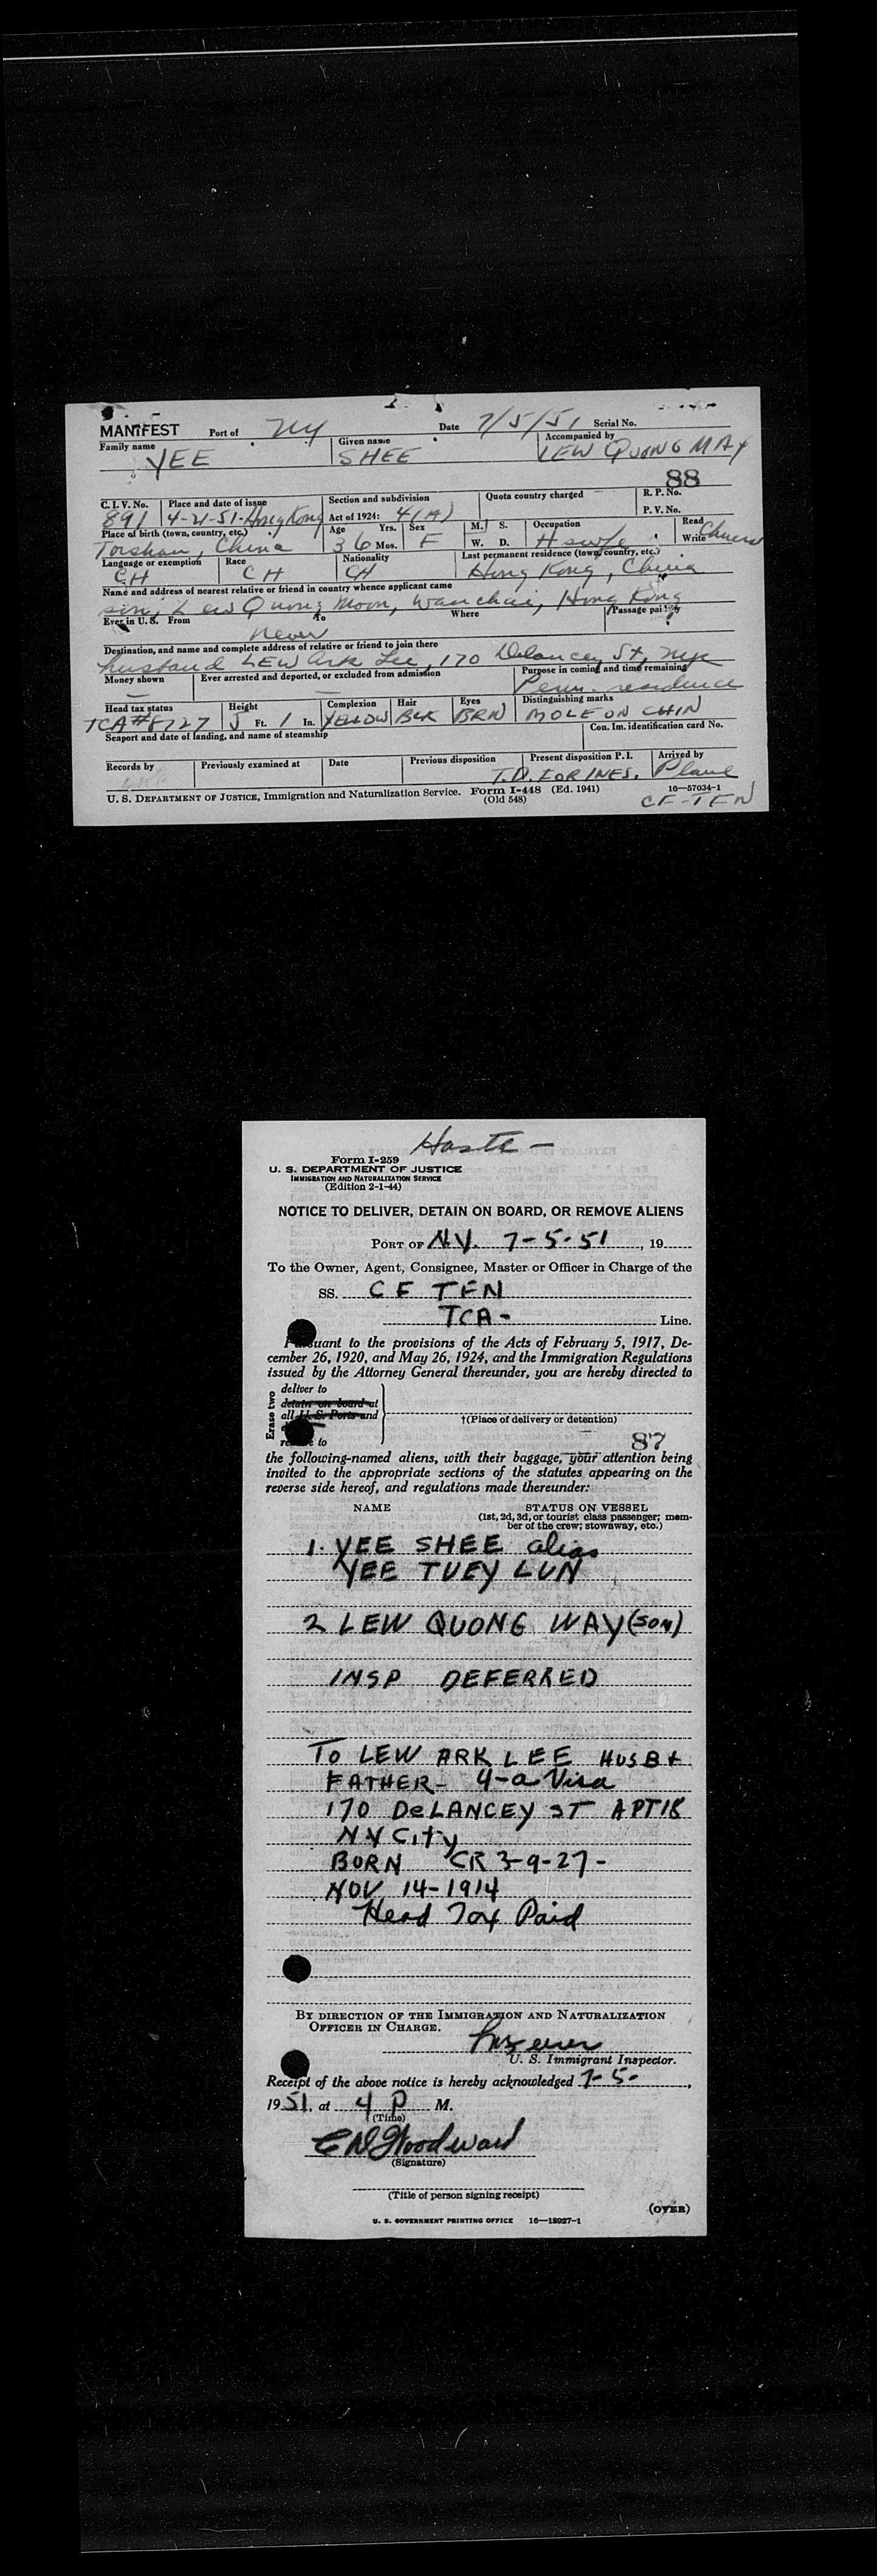 MANIFEST Port of NY Date 7/5/51 Serial No.
Family name Given name Accompanied by
YEE SHEE LEW QUONG MAY
88
C. I. V. No. Place and date of issue Section and subdivision Quota country charged R. P. No.
891 4-21-51-Hong Kong Act of 1924: 4(A) P. V. No.
Place of birth (town, country, etc.) Age Yrs. Sex M. S. Occupation Read
Toishan, China 36 Mos. F W. D. Hswfe Write
Language or exemption Race Nationality Last permanent residence (town, country, etc.)
CH CH CH Hong Kong, China
Name and address of nearest relative or friend in country whence applicant came
son, Lew Quong Moon, Wanchai, Hong Kong
Ever in U. S. From To Where Passage paid by
never
Destination, and name and complete address of relative or friend to join there
husband LEW Ark Lee, 170 Delancey St, nyc
Money shown Ever arrested and deported, or excluded from admission Purpose in coming and time remaining
— — Perm. residence
Head tax status Height Complexion Hair Eyes Distinguishing marks
TCA#8727 5 Ft. 1 In. YELLOW BLK BRN MOLE ON CHIN
Seaport and date of landing, and name of steamship Con. Im. identification card No.
Records by Previously examined at Date Previous disposition Present disposition P. I. Arrived by
T.D. FOR INES. Plane
U. S. DEPARTMENT OF JUSTICE, Immigration and Naturalization Service. Form I-448 (Ed. 1941) 16—57034-1
(Old 548) CF-TFN
Haste -
Form I-259
U. S. DEPARTMENT OF JUSTICE
IMMIGRATION AND NATURALIZATION SERVICE
(Edition 2-1-44)
NOTICE TO DELIVER, DETAIN ON BOARD, OR REMOVE ALIENS
PORT OF N.Y. 7-5-51, 19
To the Owner, Agent, Consignee, Master or Officer in Charge of the
SS. CF TFN
TCA- Line.
Pursuant to the provisions of the Acts of February 5, 1917, De-
cember 26, 1920, and May 26, 1924, and the Immigration Regulations
issued by the Attorney General thereunder, you are hereby directed to
Erase two
deliver to
detain on board at
all U. S. Ports and
†(Place of delivery or detention)
remove to
87
the following-named aliens, with their baggage, your attention being
invited to the appropriate sections of the statutes appearing on the
reverse side hereof, and regulations made thereunder:
NAME STATUS ON VESSEL
(1st, 2d, 3d, or tourist class passenger; mem-
ber of the crew; stowaway, etc.)
1. YEE SHEE alias
YEE TUEY LUN
2 LEW QUONG WAY (SON)
INSP DEFERRED
TO LEW ARK LEE HUSB +
FATHER- 4-a Visa
170 DeLANCEY ST APT18
NY City
BORN CR 3-9-27-
NOV 14-1914
Head Tax Paid
BY DIRECTION OF THE IMMIGRATION AND NATURALIZATION
OFFICER IN CHARGE.
U. S. Immigrant Inspector.
Receipt of the above notice is hereby acknowledged 7-5-,
1951, at 4 P M.
(Time)
Woodward
(Signature)
(Title of person signing receipt)
(OVER)
U. S. GOVERNMENT PRINTING OFFICE 16—18927-1